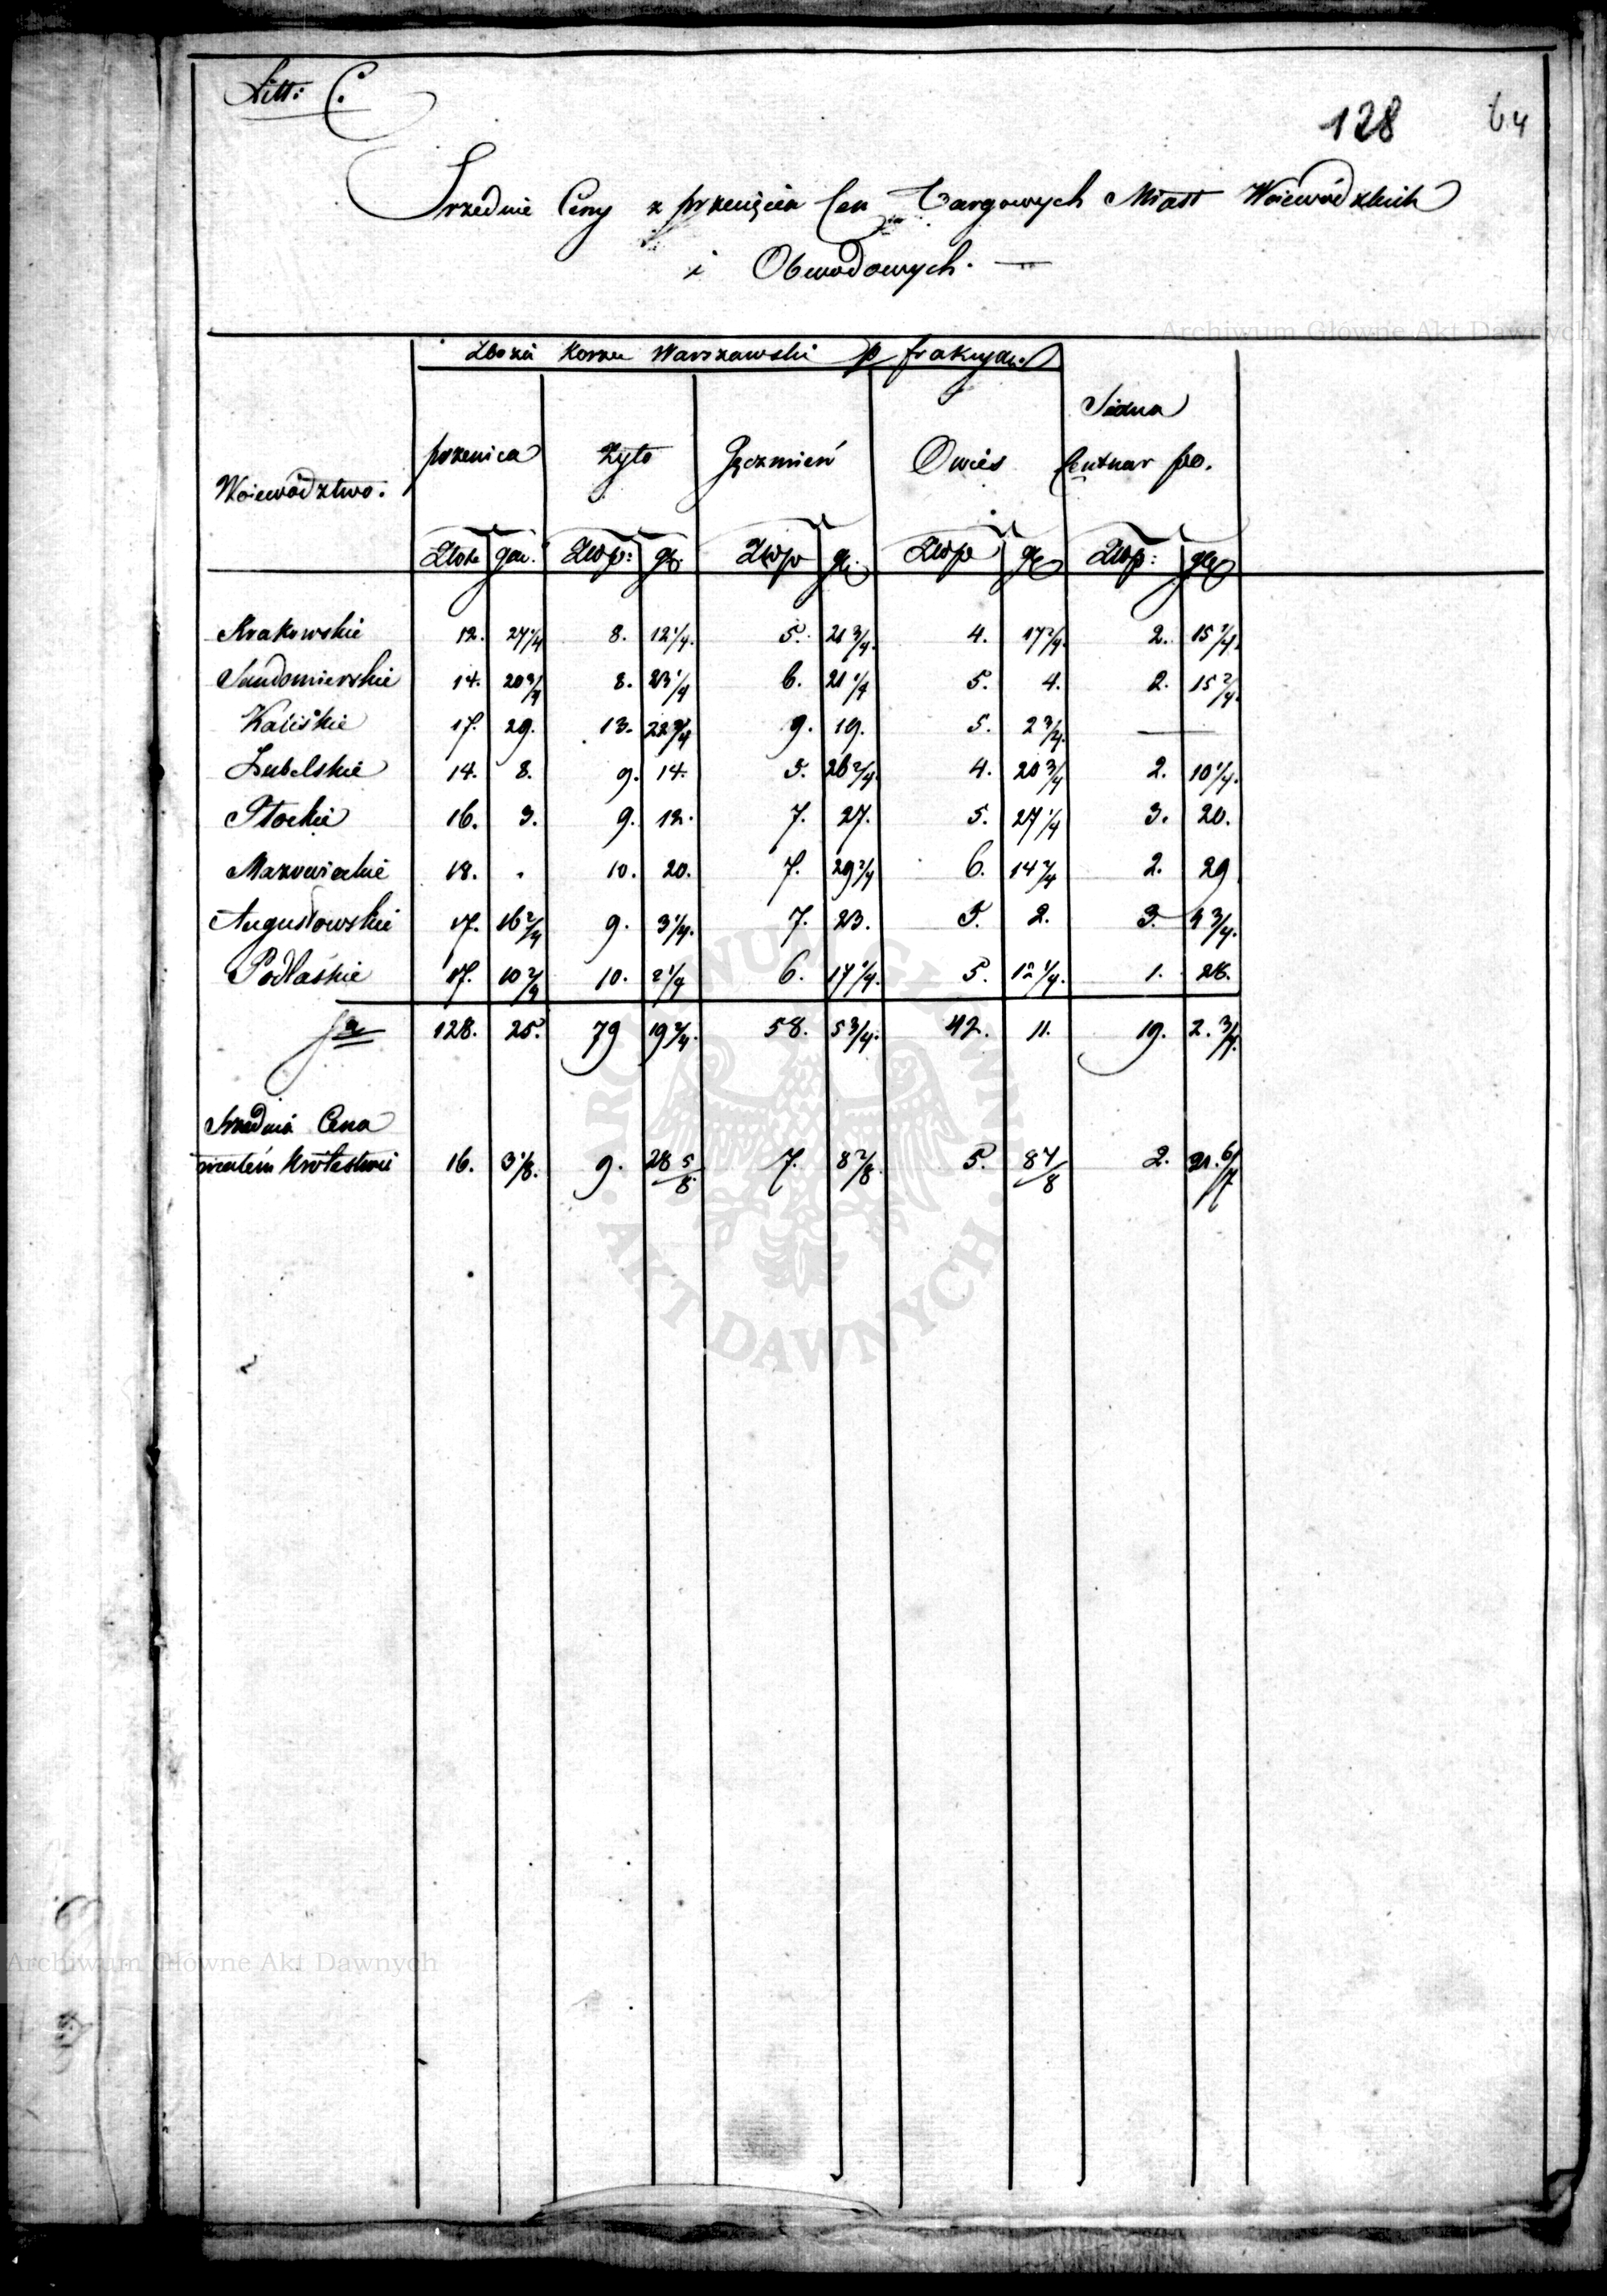 Litt: C.
128 64
Srzednie Ceny z przecięcia Cen Targowych Miast Woiewódzkich
i Obwodowych. —
Archiwum Główne Akt Dawnych
Zboża Korzec Warszawski p frakcyi
Woiewództwo. pszenica Żyto Jęczmień Owies Siana Centnar po.
Złote gro. Złop: gr. Złop gr. Złop gr Złop: gr
Krakowskie 12. 27 1/4 8. 12 1/4. 5. 21 3/4. 4. 17 2/4. 2. 15 2/4.
Sandomierskie 14. 20 3/4 8. 23 1/4 6. 21 1/4 5. 4. 2. 15 2/4.
Kaliskie 17. 29. 13. 22 3/4 9. 19. 5. 2 3/4. —
Lubelskie 14. 8. 9. 14. 5. 26 2/4. 4. 20 3/4 2. 10 1/4.
Płockie 16. 3. 9. 12. 7. 27. 5. 27 1/4 3. 20.
Mazowieckie 18. . 10. 20. 7. 29 2/4 6. 14 2/4 2. 29
Augustowskie 17. 16 2/4 9. 3 1/4. 7. 23. 5. 2. 3. 4 3/4.
Podlaskie 17. 10 2/4 10. 2 1/4 6. 17 1/4. 5. 12 1/4. 1. 28.
128. 25. 79 19 2/4. 58. 5 3/4. 42. 11. 19. 2. 3/4.
Srzednia Cena
w całém Królestwie 16. 3 1/8. 9. 28 5/8 7. 8 2/8. 5. 8 7/8 2. 21. 6/7
ARCHIWUM GŁÓWNE AKT DAWNYCH
Archiwum Główne Akt Dawnych